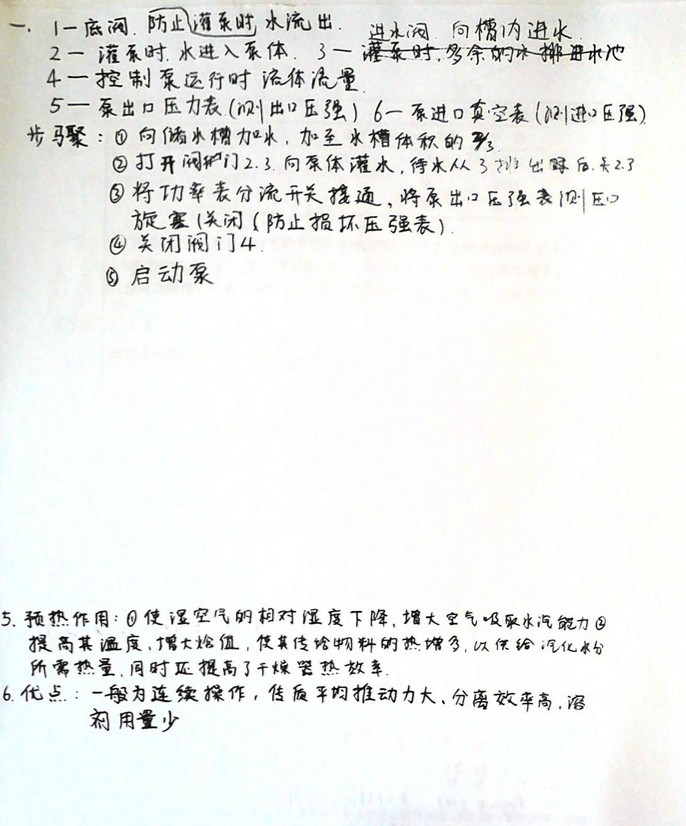 一. 1—底阀. 防止灌泵时水流出. 进水阀. 向槽内进水.
2— 灌泵时.水进入泵体. 3—灌泵时.多余的水排进水池
4—控制泵运行时流体流量.
5—泵出口压力表.(测出口压强) 6—泵进口真空表(测进口压强)
步骤: ① 向储水槽加水, 加至水槽体积的2/3.
② 打开阀门2.3.向泵体灌水, 待水从3排出 后.关2.3
③ 将功率表分流开关接通, 将泵出口压强表测压口
旋塞(关闭(防止损坏压强表).
④ 关闭阀门4.
⑤ 启动泵
5. 预热作用: ① 使湿空气的相对湿度下降, 增大空气吸取水汽能力 ②
提高其温度, 增大焓值, 使其传给物料的热增多, 以供给汽化水分
所需热量, 同时还提高了干燥器热效率.
6. 优点: 一般为连续操作, 传质平均推动力大、分离效率高, 溶
剂用量少